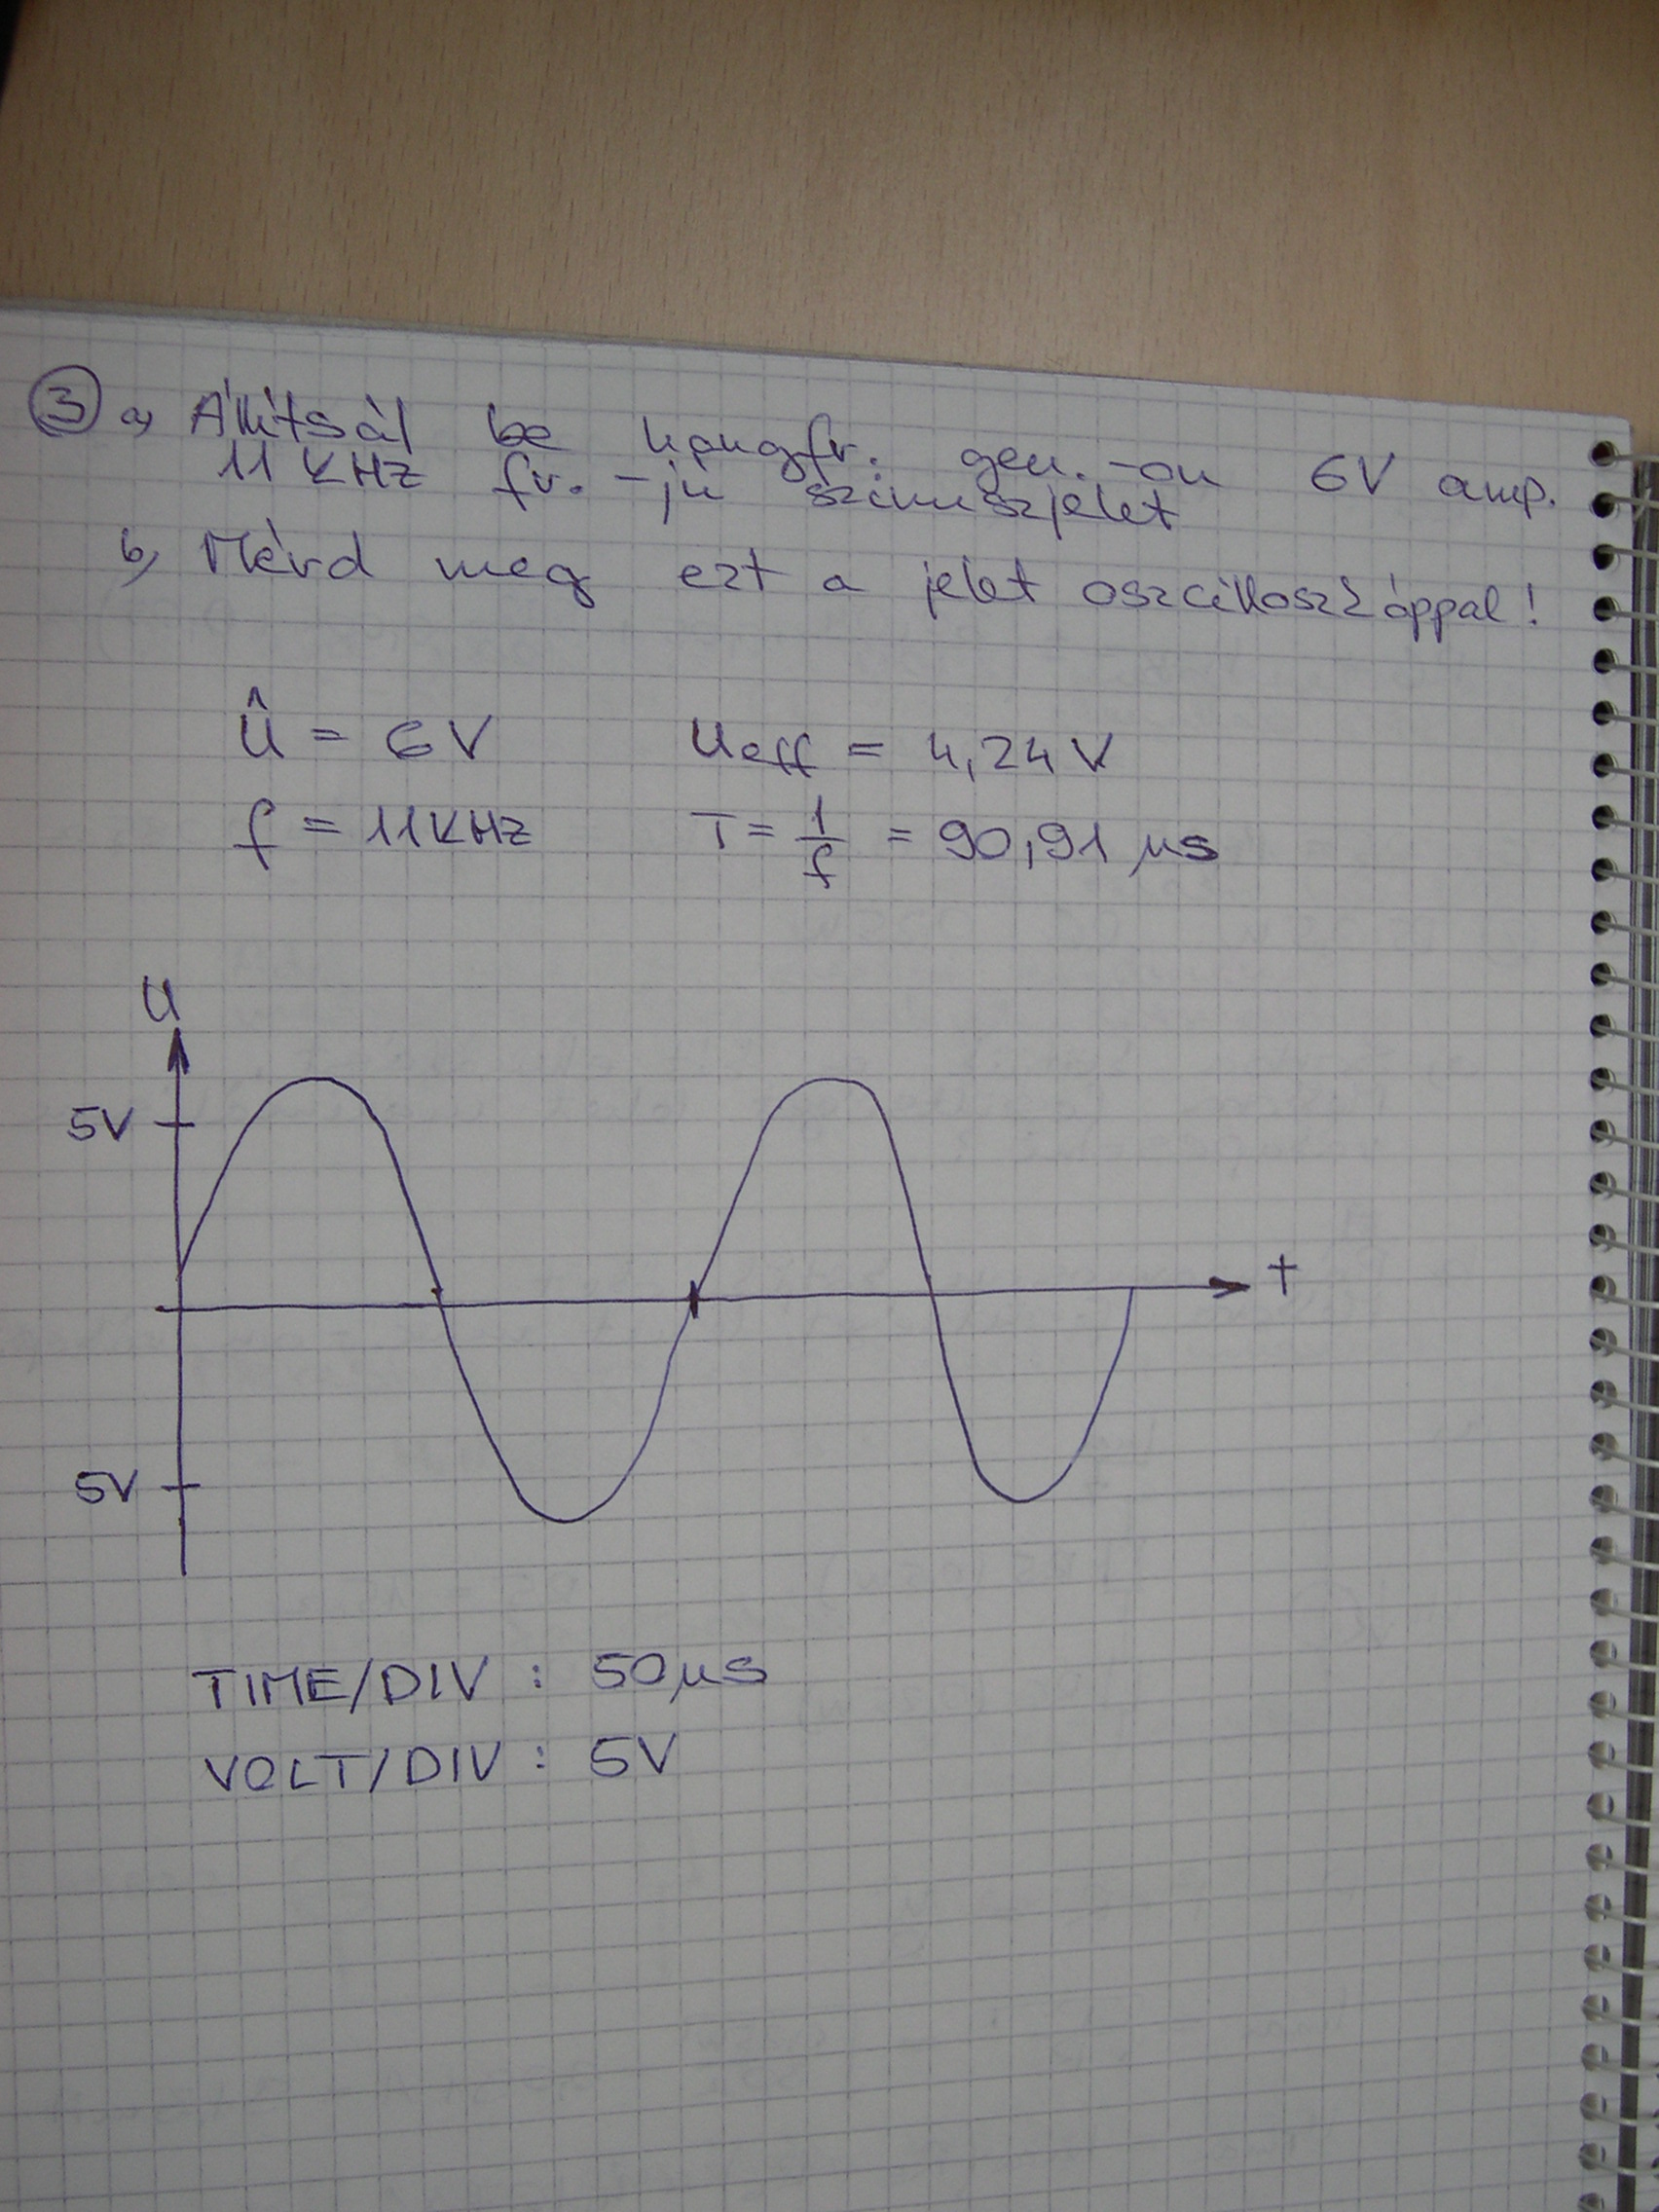 3 a, Állítsál be hangfr. gen.-on 6V amp.
11 KHz fr.-jú szinuszjelet
b, Mérd meg ezt a jelet oszcilloszkóppal!
Û = 6V Ueff = 4,24V
f = 11KHz T = 1/f = 90,91 µs
U
5V
t
5V
TIME/DIV : 50µs
VOLT/DIV : 5V